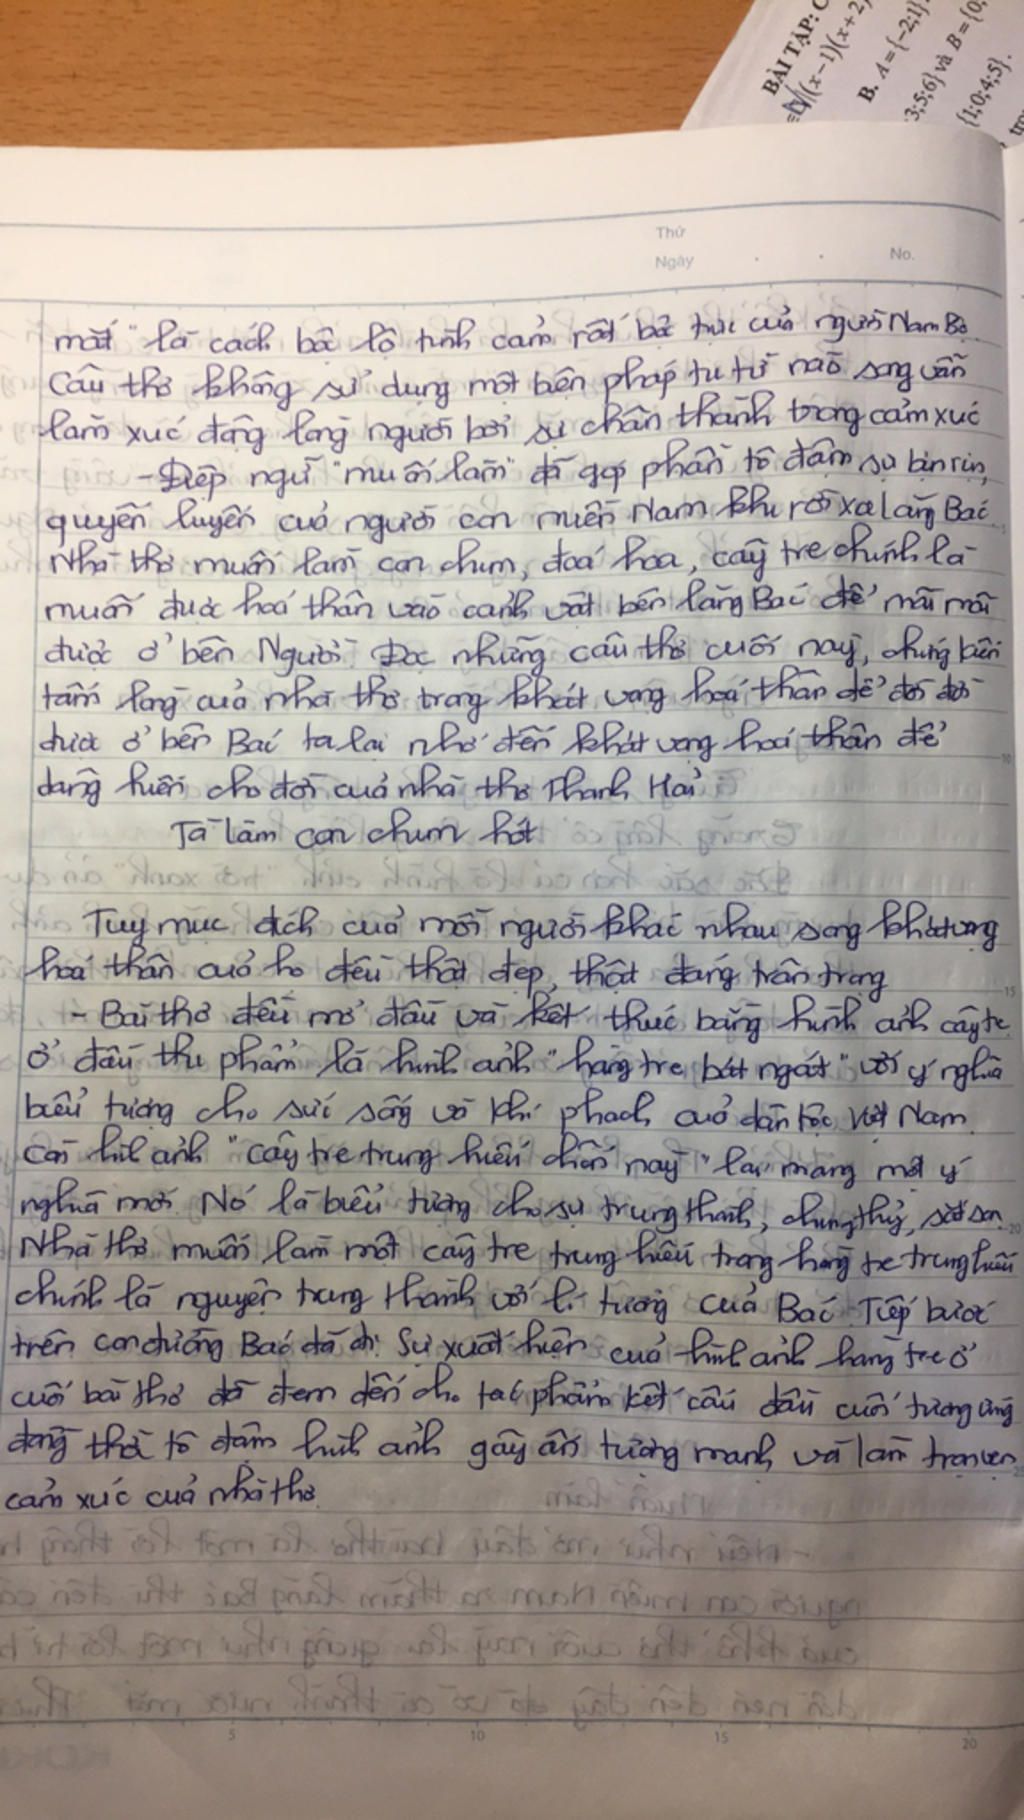 BÀI TẬP: C
(x-1)(x+2)
B. A={-2;1}
3;5;6} và B={0;
{1;0;4;5}.
Thứ
Ngày
No.
mắt" là cách bộc lộ tình cảm rất bộc trực của người Nam Bộ
Câu thơ không sử dụng một biện pháp tu từ nào song vẫn
làm xúc động lòng người bởi sự chân thành trong cảm xúc
- Điệp ngữ "muốn làm" đã góp phần tô đậm sự bịn rịn,
quyến luyến của người con miền Nam khi rời xa lăng Bác.
Nhà thơ muốn làm con chim, đoá hoa, cây tre chính là
muốn được hoá thân vào cảnh vật bên lăng Bác để mãi mãi
được ở bên Người. Đọc những câu thơ cuối này, chứng kiến
tấm lòng của nhà thơ trong khát vọng hoá thân để đời đời
được ở bên Bác ta lại nhớ đến khát vọng hoá thân để
dâng hiến cho đời của nhà thơ Thanh Hải:
Ta làm con chim hót
Tuy mục đích của mỗi người khác nhau song khát vọng
hoá thân của họ đều thật đẹp, thật đáng trân trọng
- Bài thơ đều mở đầu và kết thúc bằng hình ảnh cây tre
Ở đầu thi phẩm là hình ảnh "hàng tre bát ngát" với ý nghĩa
biểu tượng cho sức sống và khí phách của dân tộc Việt Nam.
Còn hình ảnh "cây tre trung hiếu chốn này" lại mang một ý
nghĩa mới. Nó là biểu tượng cho sự trung thành, chung thủy, sắt son.
Nhà thơ muốn làm một cây tre trung hiếu trong hàng tre trung hiếu
chính là nguyện trung thành với lí tưởng của Bác. Tiếp bước
trên con đường Bác đã đi. Sự xuất hiện của hình ảnh hàng tre ở
cuối bài thơ đã đem đến cho tác phẩm kết cấu đầu cuối tương ứng
đồng thời tô đậm hình ảnh gây ấn tượng mạnh và làm trọn vẹn
cảm xúc của nhà thơ.
5 10 15 20